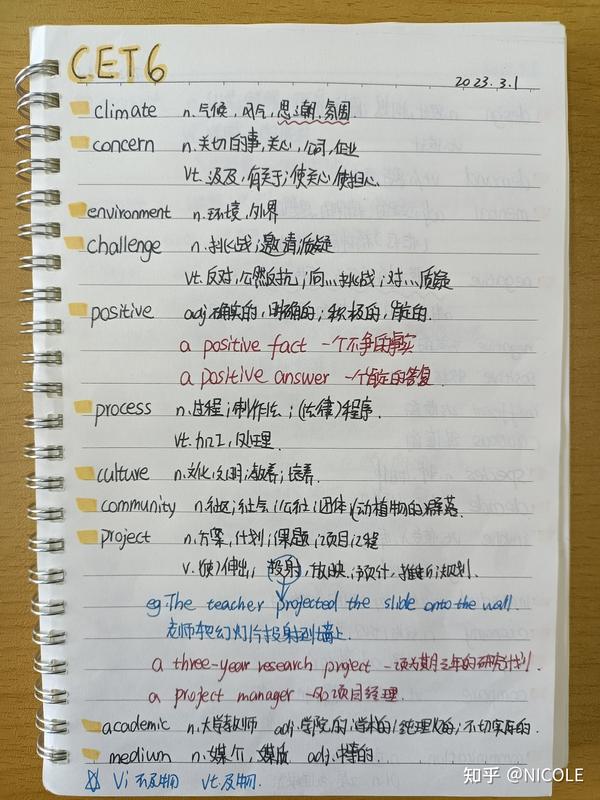 CET6
2023.3.1
climate n.气候,风气,思潮,氛围
concern n.关切的事,关心,公司,企业
vt.涉及,有关于;使关心,使担心
environment n.环境,外界
challenge n.挑战;邀请;质疑
vt.反对,公然反抗;向…挑战;对…质疑
positive adj.确实的,明确的;积极的,肯定的.
a positive fact 一个不争的事实
a positive answer 一个肯定的答复
process n.过程;制作法;(法律)程序.
vt.加工,处理.
culture n.文化,文明;教养;培养.
community n.社区;社会;公社;团体;(动植物的)群落.
project n.方案,计划;课题,项目;工程
v.(使)伸出;投射,放映;预计,推断;规划.
eg.The teacher projected the slide onto the wall.
老师把幻灯片投射到墙上.
a three-year research project 一项为期三年的研究计划.
a project manager 一名项目经理.
academic n.大学教师 adj.学院的;学术的;纯理论的;不切实际的.
medium n.媒介,媒质 adj.中等的.
☆ Vi 不及物 vt.及物.
知乎 @NICOLE